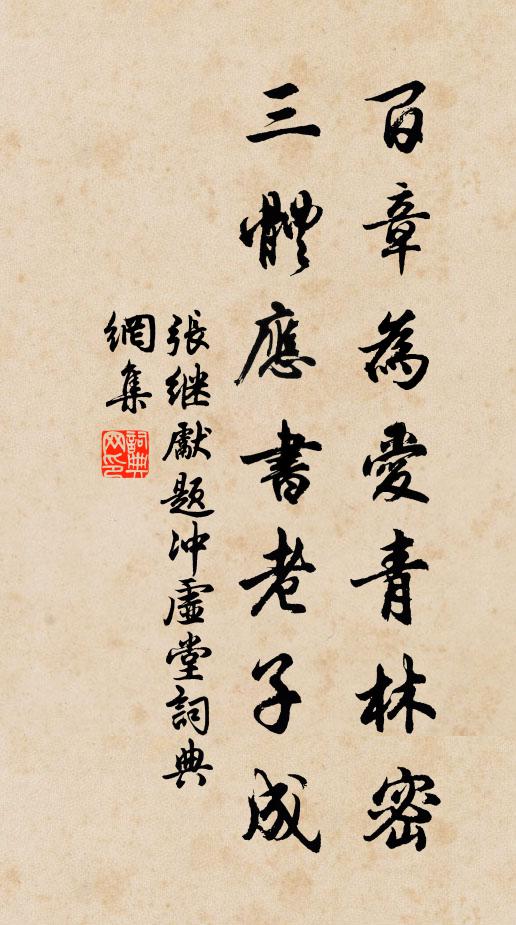 百章為愛青林密
三體應書老子成
張继獻題冲虛堂詞典
網集
詞典
网印